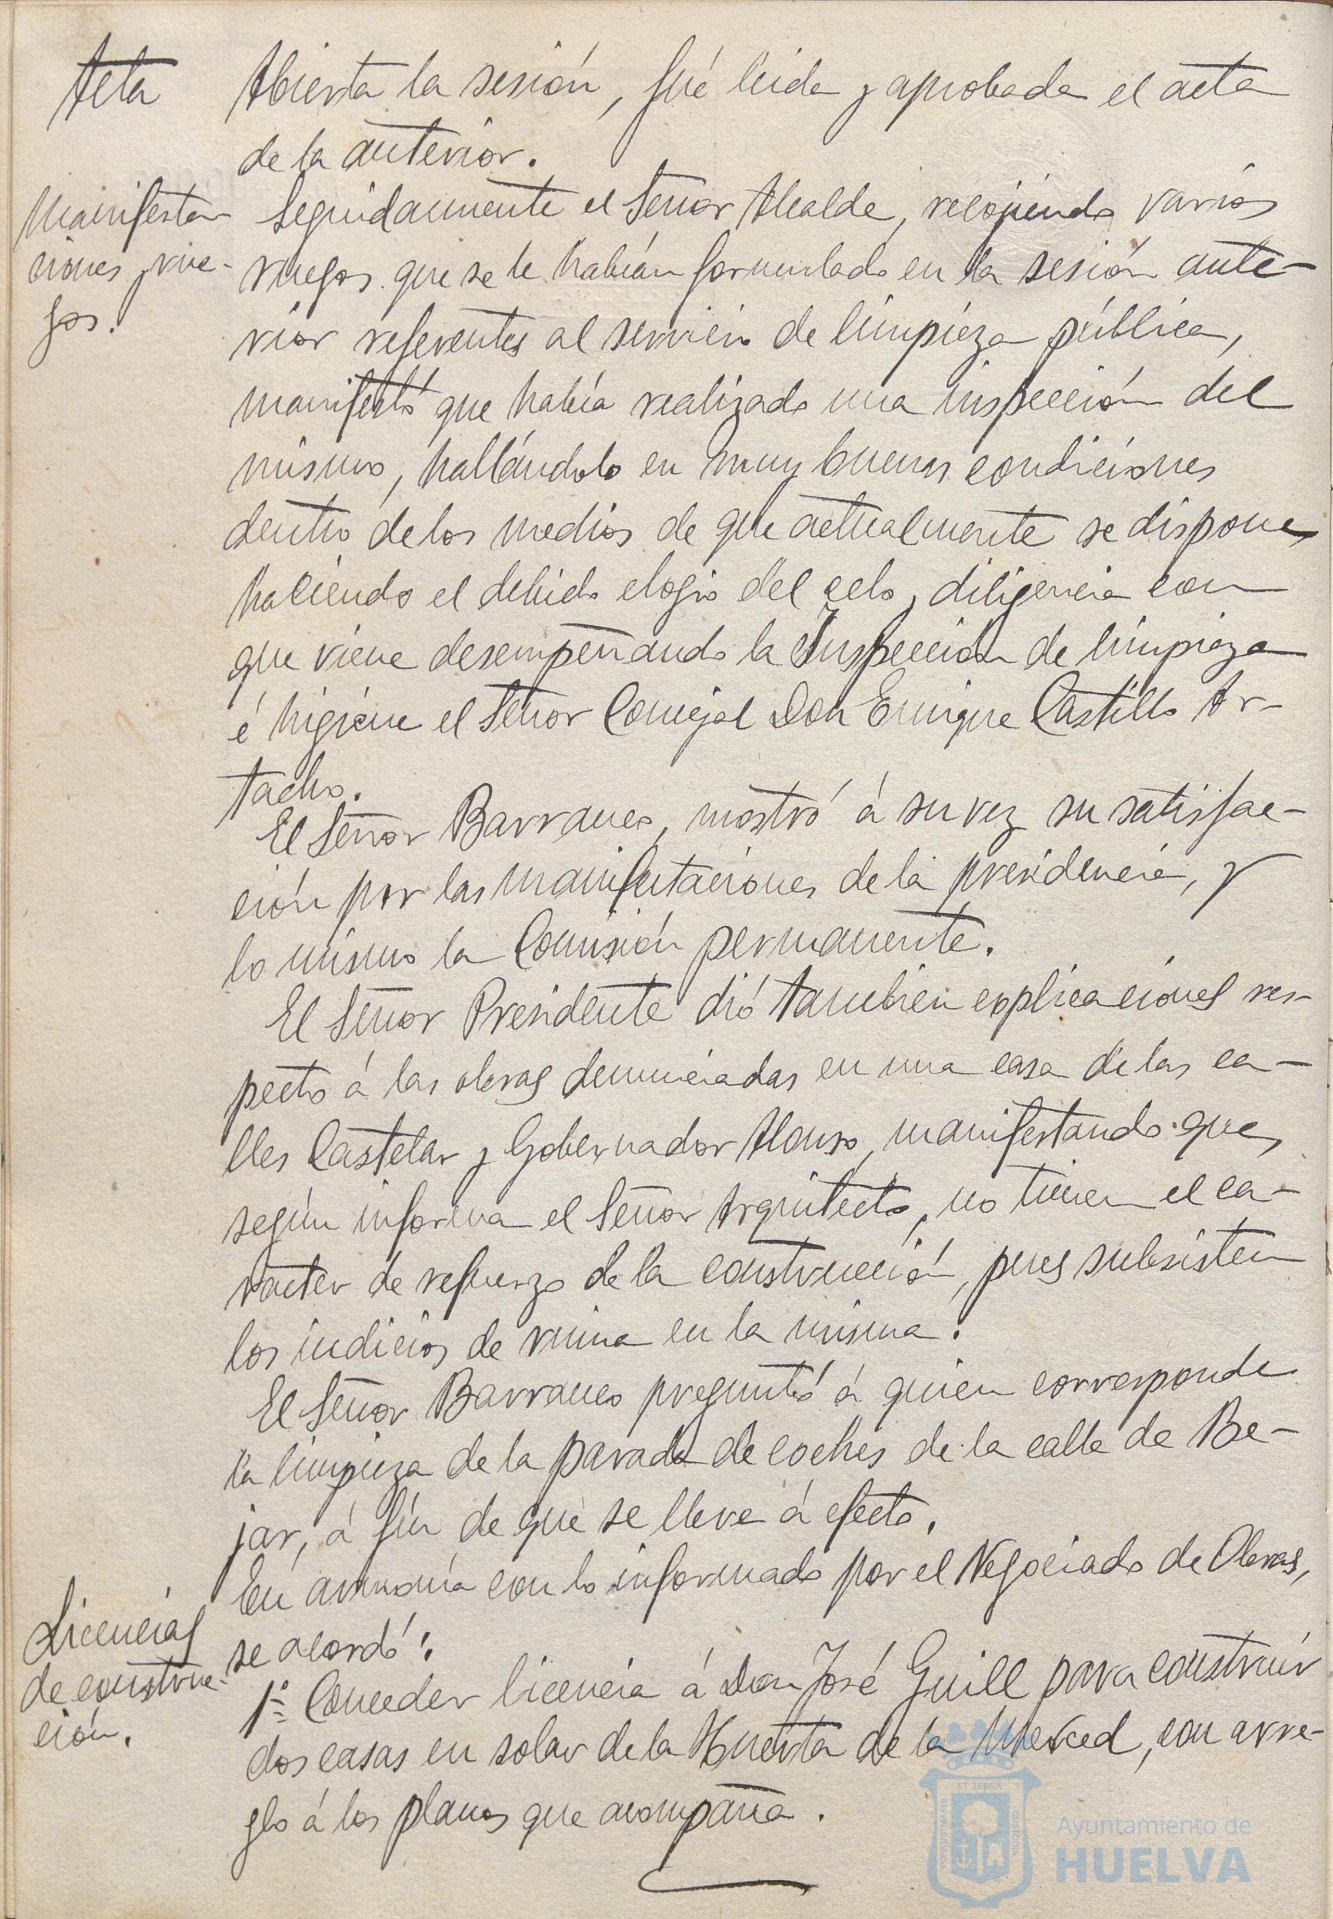 Acta
Abierta la sesión, fué leida y aprobada el acta
de la anterior.
Manifesta-
ciones y rue-
gos.
Seguidamente el Señor Alcalde, recojiendo varios
ruegos que se le habían formulado en la sesión ante-
rior referentes al servicio de limpieza pública,
manifestó que había realizado una inspección del
mismo, hallándolo en muy buenas condiciones
dentro de los medios de que actualmente se dispone,
haciendo el debido elogio del celo y diligencia con
que viene desempeñando la Inspección de limpieza
é higiene el Señor Concejal Don Enrique Castillo Ar-
tacho.
El Señor Barranco, mostró á su vez su satisfac-
ción por las manifestaciones de la presidencia, y
lo mismo la Comisión permanente.
El Señor Presidente dió también explicaciones res-
pecto á las obras denunciadas en una casa de las ca-
lles Castelar y Gobernador Alonso, manifestando que,
según informa el Señor Arquitecto, no tienen el ca-
racter de refuerzo de la construcción, pues subsisten
los indicios de ruina en la misma.
El Señor Barranco preguntó á quien corresponde
la limpieza de la parada de coches de la calle de Be-
jar, á fín de que se lleve á efecto.
Licencias
de construc-
ción.
En armonía con lo informado por el Negociado de Obras,
se acordó:
1º Conceder licencia á Don José Guill para construir
dos casas en solar de la Huerta de la Merced, con arre-
glo á los planos que acompaña.
Ayuntamiento de
HUELVA